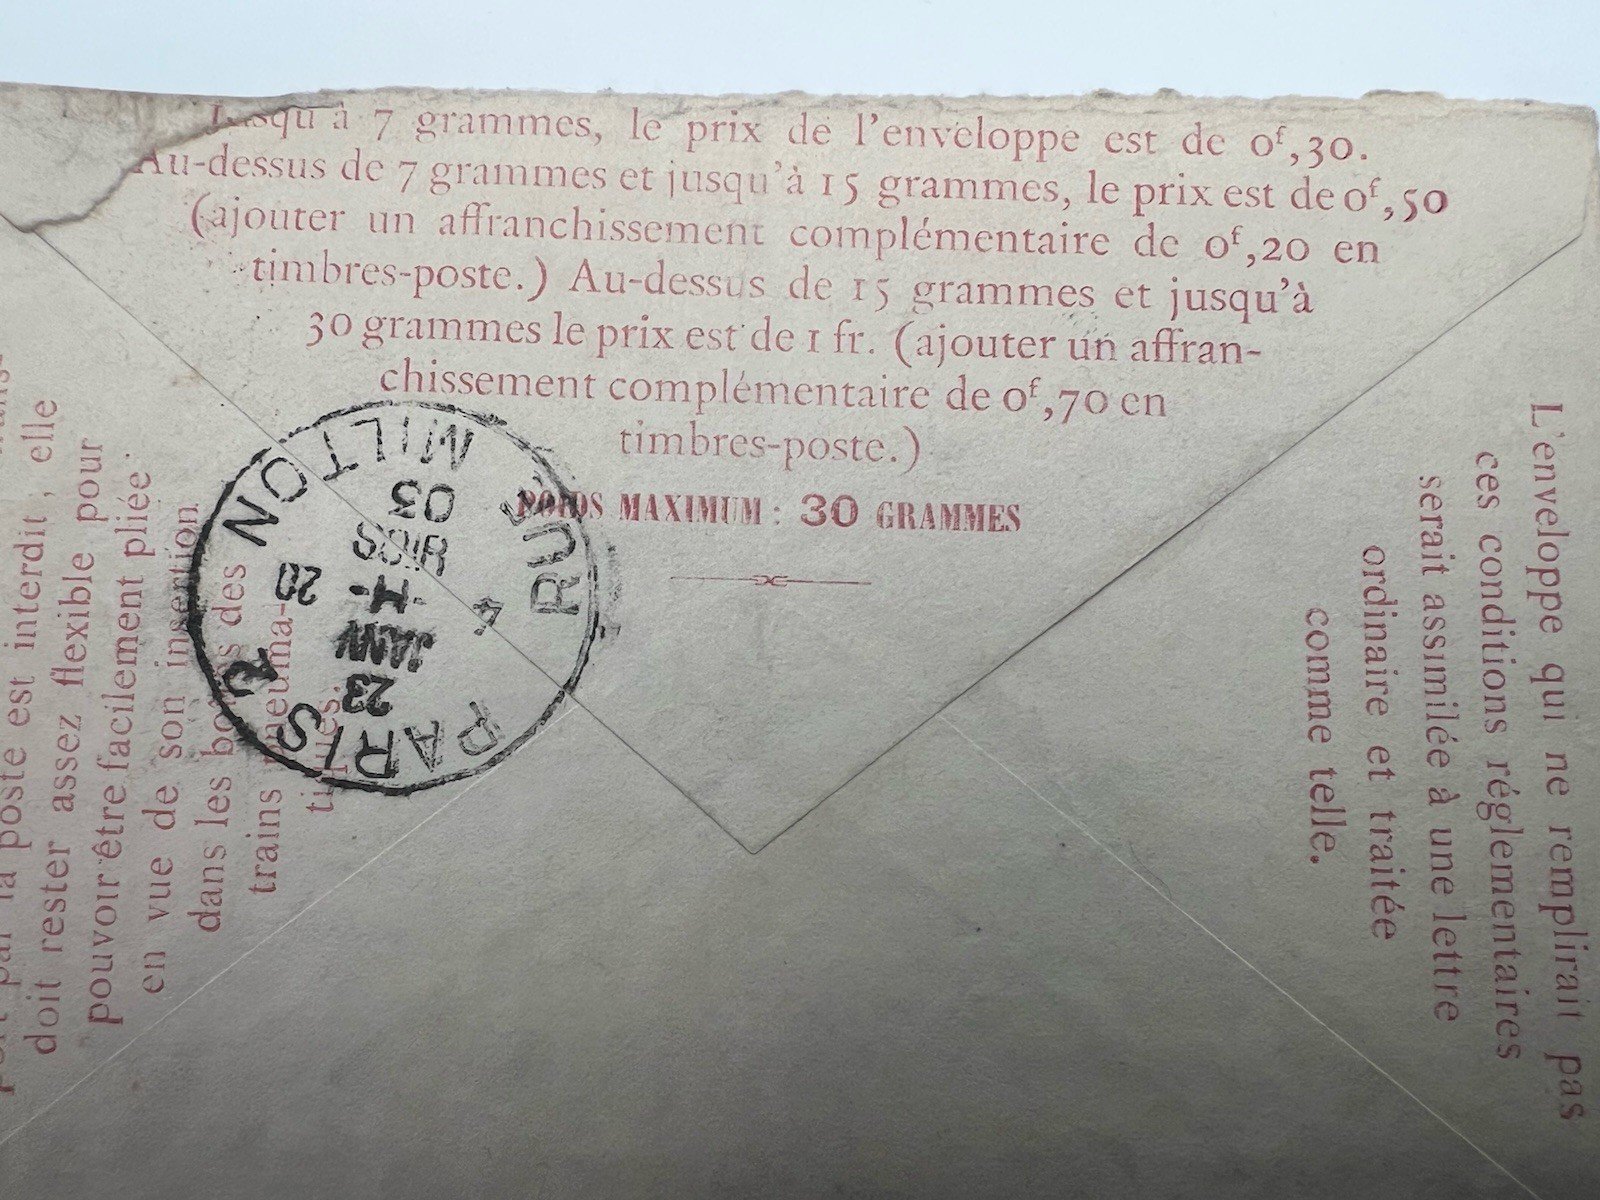 Jusqu'à 7 grammes, le prix de l'enveloppe est de 0f,30.
Au-dessus de 7 grammes et jusqu'à 15 grammes, le prix est de 0f,50
(ajouter un affranchissement complémentaire de 0f,20 en
timbres-poste.) Au-dessus de 15 grammes et jusqu'à
30 grammes le prix est de 1 fr. (ajouter un affran-
chissement complémentaire de 0f,70 en
timbres-poste.)
POIDS MAXIMUM : 30 GRAMMES
par la poste est interdit, elle
doit rester assez flexible pour
pouvoir être facilement pliée
en vue de son insertion
dans les boîtes des
trains pneuma-
tiques.
PARIS 2
23
JANV
4 H 20
SOIR
03
RUE MILTON
L'enveloppe qui ne remplirait pas
ces conditions réglementaires
serait assimilée à une lettre
ordinaire et traitée
comme telle.